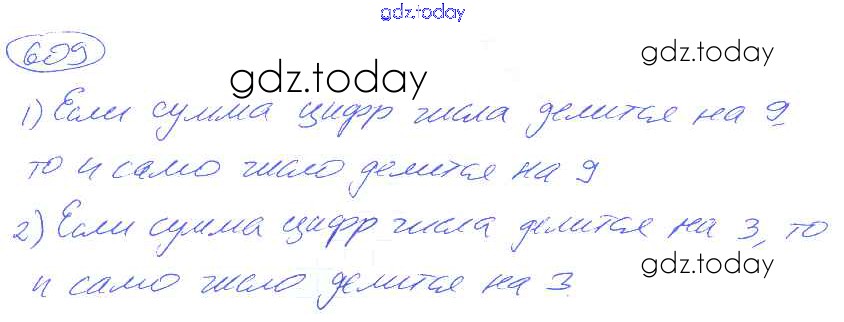 gdz.today
609
gdz.today
gdz.today
1) Если сумма цифр числа делится на 9,
то и само число делится на 9
2) Если сумма цифр числа делится на 3, то
и само число делится на 3.
gdz.today